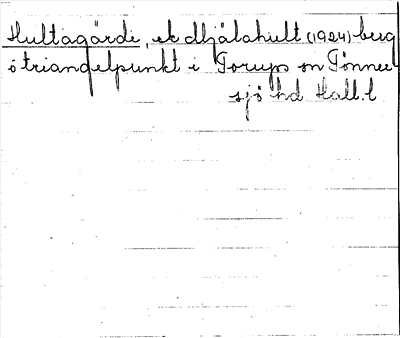 Hultagärde, ek dhjälahult (1924) berg
ö triangelpunkt i Torups sn Tönner
sjö hd Hall.l